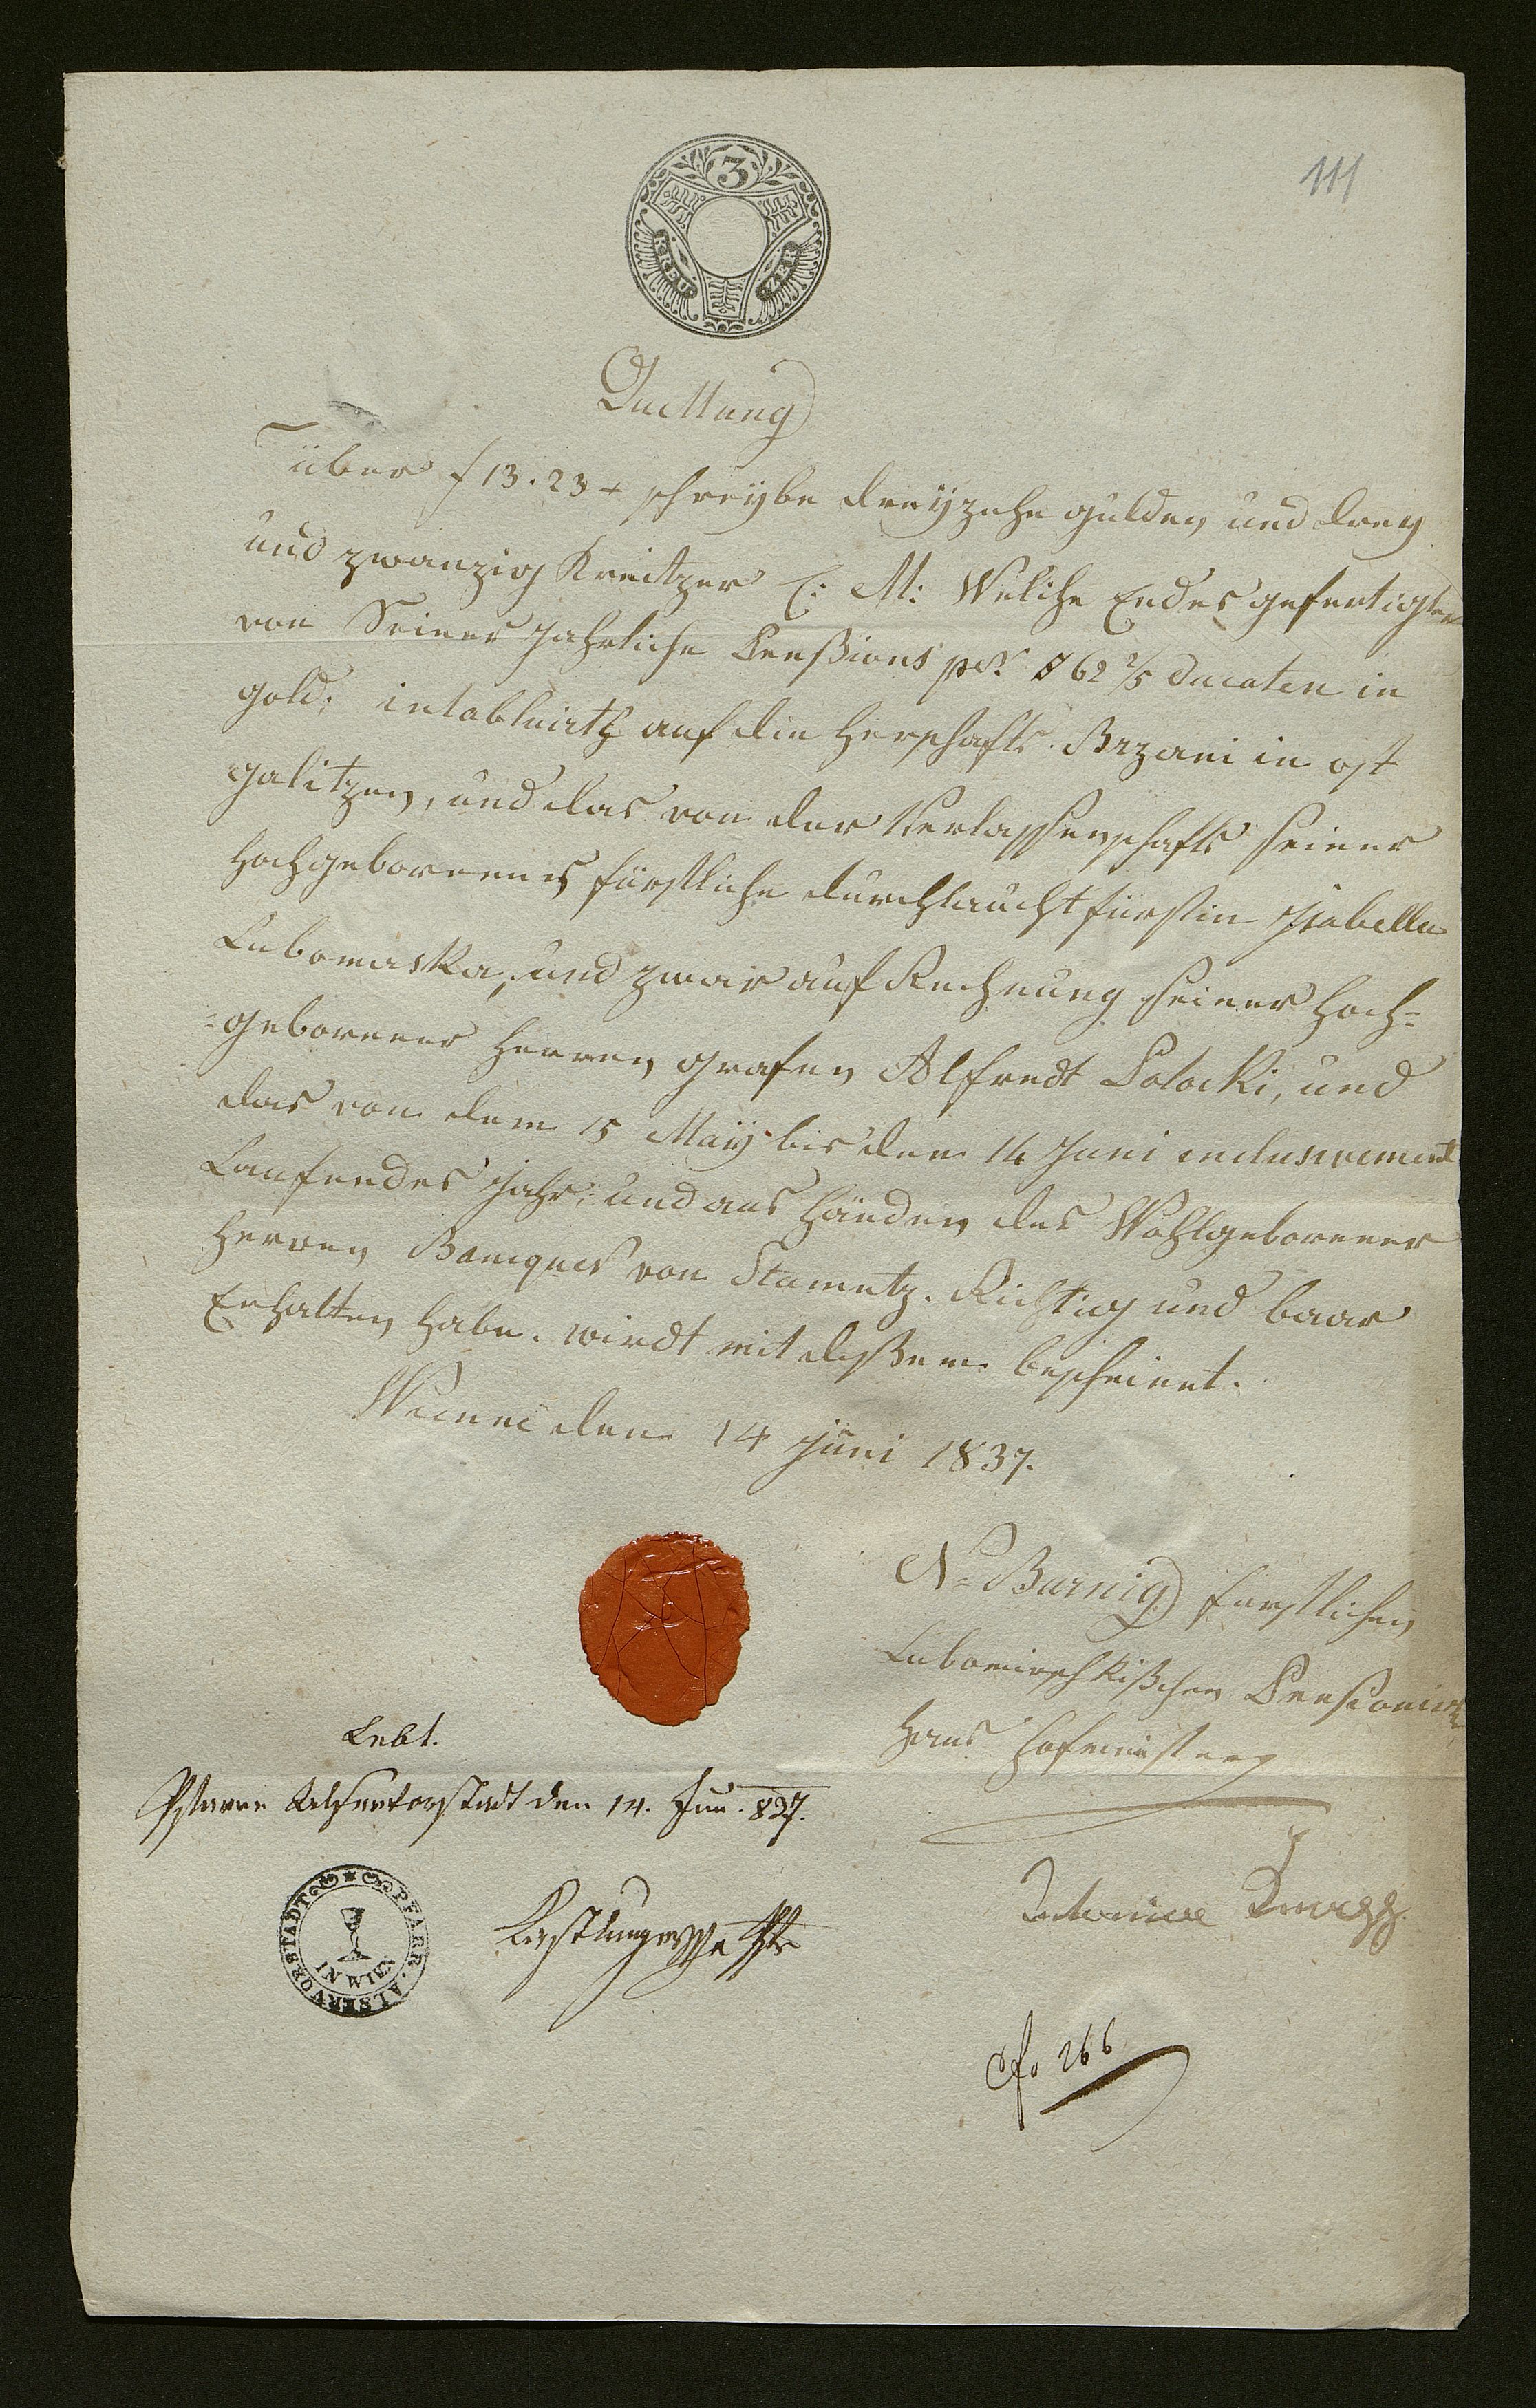 111
3
KREU ZER
Quittung
über f 13. 23 x schreybe dreyzehn gulden und drey
und zwanzig Kreitzer C: M: Welche Endes gefertigter
von Seiner Jahrliche Penßions pr # 62 2/5 Ducaten in
gold; intabluirth auf die Herschafts Brzani in ost
galitzen, und das von der Verlassenschafts seiner
Hochgeborenens fürstliche durchlaucht fürstin Isabella
Lubomaska, und zwar auf Rechnung seiner Hoch=
=geborener Herren grafen Alfredt Potocki, und
das von dem 15 Maÿ bis den 14 Juni inclusivement
Laufendes Jahr; und aus Händen des Wohlgeborener
Herren Banques von Stametz. Richtig und baar
Erhalten habe. wirdt mit deßem bescheinet.
Wienn den 14 Juni 1837.
N= Burnig fürstlichen
Lubomirschkißchen Pensionist
Haus Hofmeister
Lebt.
Pfarre Alservorstadt den 14. Jun. 837.
PFARR. ALSERVORSTADT
IN WIEN
fo 266